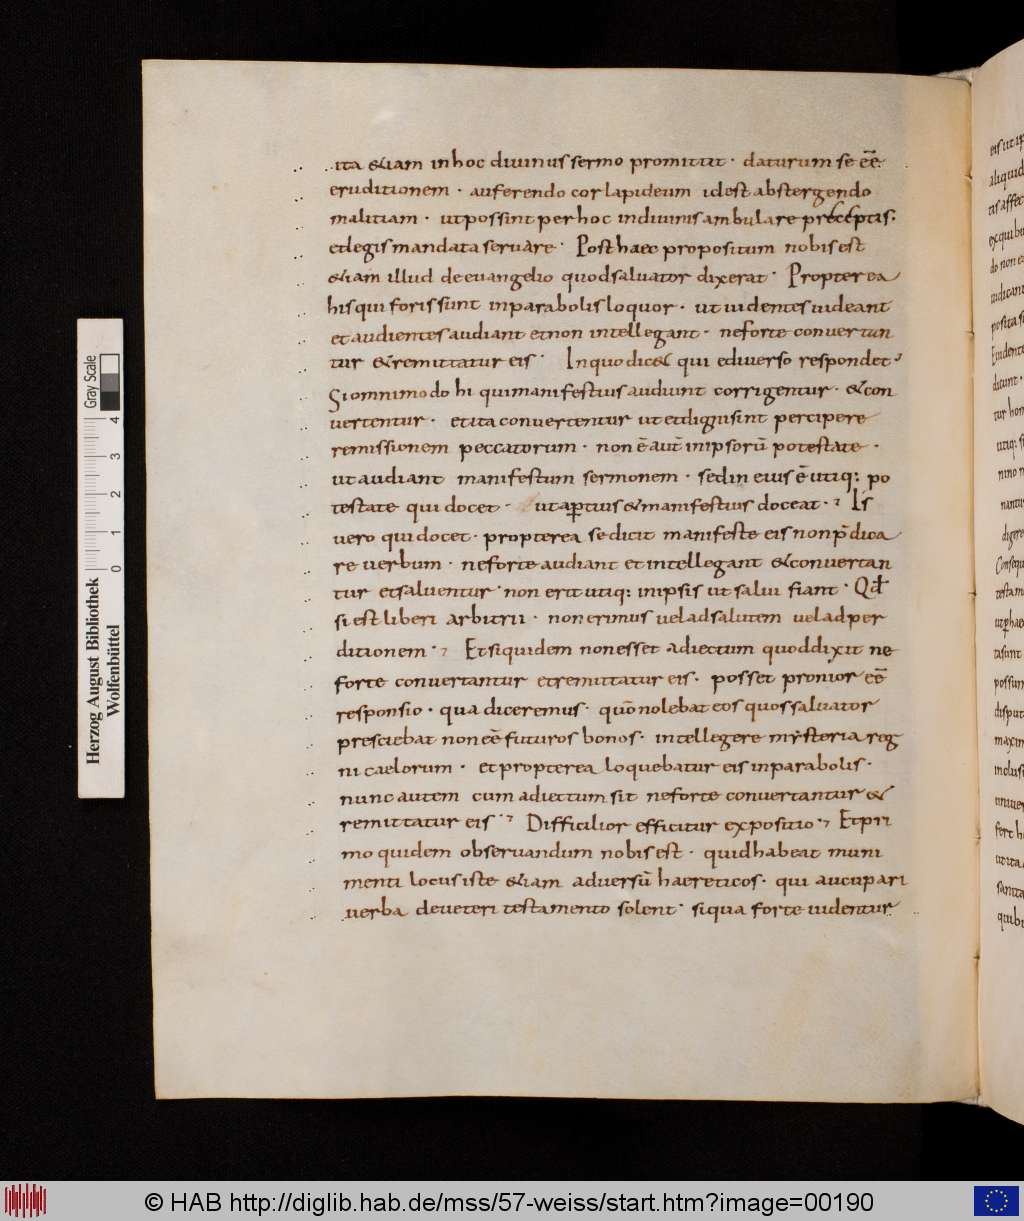 ita &iam in hoc divinus sermo promittit · daturum se eē
eruditionem · auferendo cor lapideum idest abstergendo
malitiam · ut possint per hoc in divinis ambulare preceptis;
et legis mandata servare · Post haec propositum nobis est
&iam illud de euangelio quod salvator dixerat · Propterea
his qui foris sunt in parabolis loquor · ut videntes videant
et audientes audiant et non intellegant · ne forte convertan
tur & remittatur eis · In quo dic& qui e diverso respondet
Si omnimodo hi qui manifestius audiunt corrigentur · & con
vertentur · et ita convertentur ut et digni sint percipere
remissionem peccatorum · non ē aut̄ in ipsorū potestate ·
ut audiant manifestum sermonem · sed in eius ē utiq: po
testate qui docet · ut aptius & manifestius doceat · Is
vero qui docet · propterea se dicit manifeste eis non p̄dica
re verbum · ne forte audiant et intellegant & convertan
tur et salventur · non erit utiq: in ipsis ut salvi fiant · Qđ
si est liberi arbitrii · non erimus vel ad salutem vel ad per
ditionem · Et siquidem non esset adiectum quod dixit ne
forte convertantur et remittatur eis · posset pronior eē
responsio · qua diceremus · quō nolebat eos quos salvator
presciebat non eē futuros bonos · intellegere mysteria reg
ni caelorum · et propterea loquebatur eis in parabolis ·
nunc autem cum adiectum sit ne forte convertantur &
remittatur eis · Difficilior efficitur expositio · Et pri
mo quidem observandum nobis est · quid habeat muni
menti locus iste &iam adversū haereticos · qui aucupari
verba de veteri testamento solent · si qua forte videntur
eis ut ip
aliquid
tis affec
ex quibu
do non e
iudicant
posita si
Evidente
dicunt ·
tur hom
utiq: si
nino n
nantur
digere
Consequ
testam
ut p haec
ta sunt
possun
disput
maxim
inclusi
univer
fert h
ut ita
sanita
quibu
Gray Scale
0 1 2 3 4
Herzog August Bibliothek
Wolfenbüttel
© HAB http://diglib.hab.de/mss/57-weiss/start.htm?image=00190